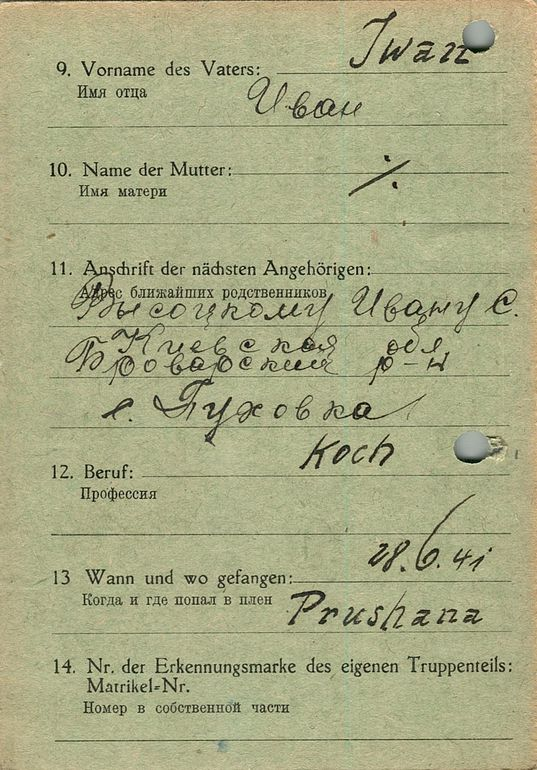 Iwan
9. Vorname des Vaters:
Имя отца
Иван
10. Name der Mutter:
Имя матери
./.
11. Anschrift der nächsten Angehörigen:
Адрес ближайших родственников
Высоцкому Ивану С.
Киевская обл
Броварский р-н
с. Пуховка
Koch
12. Beruf:
Профессия
28.6.41
13 Wann und wo gefangen:
Когда и где попал в плен
Prushana
14. Nr. der Erkennungsmarke des eigenen Truppenteils:
Matrikel-Nr.
Номер в собственной части